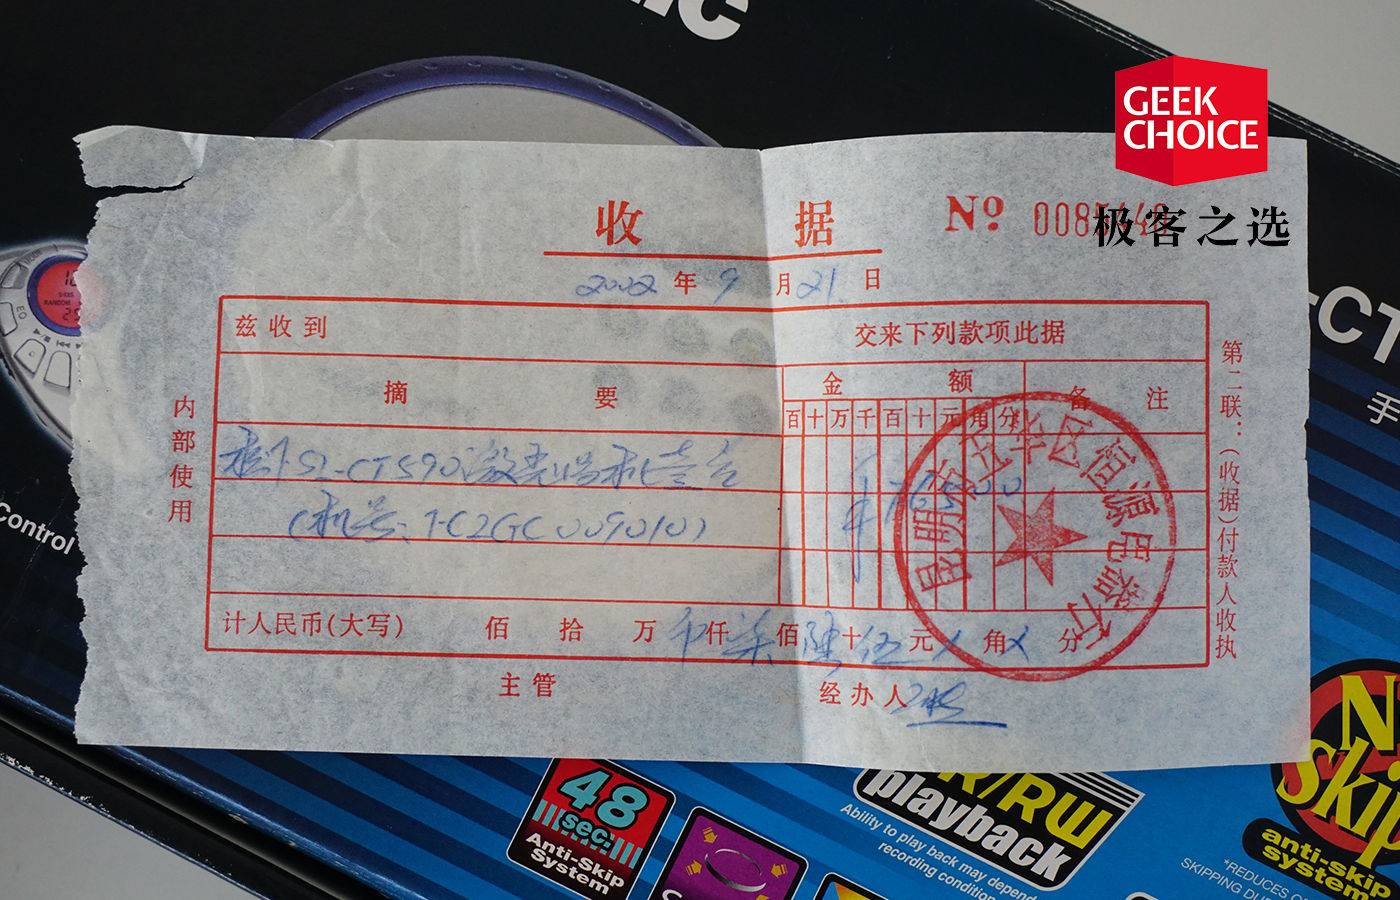 GEEK
CHOICE
极客之选
收 据 Nº
2002 年 9 月 21 日
兹收到 交来下列款项此据
摘 要
金 额
备 注
百 十 万 千 百 十 元 角 分
SL-CT590 激光唱机壹台
(机号:
¥ 765 00
计人民币(大写) 佰 拾 万 仟 柒 佰 陆 十 伍 元 角 分
主管 经办人
内部使用
第二联:(收据)付款人收执
昆明市 华区恒源电器行
-CT
手
Control
48
sec.
Anti-Skip
System
R/RW
playback
Ability to play back may depend
recording condition
Skip
anti-skip
system
*REDUCES
SKIPPING